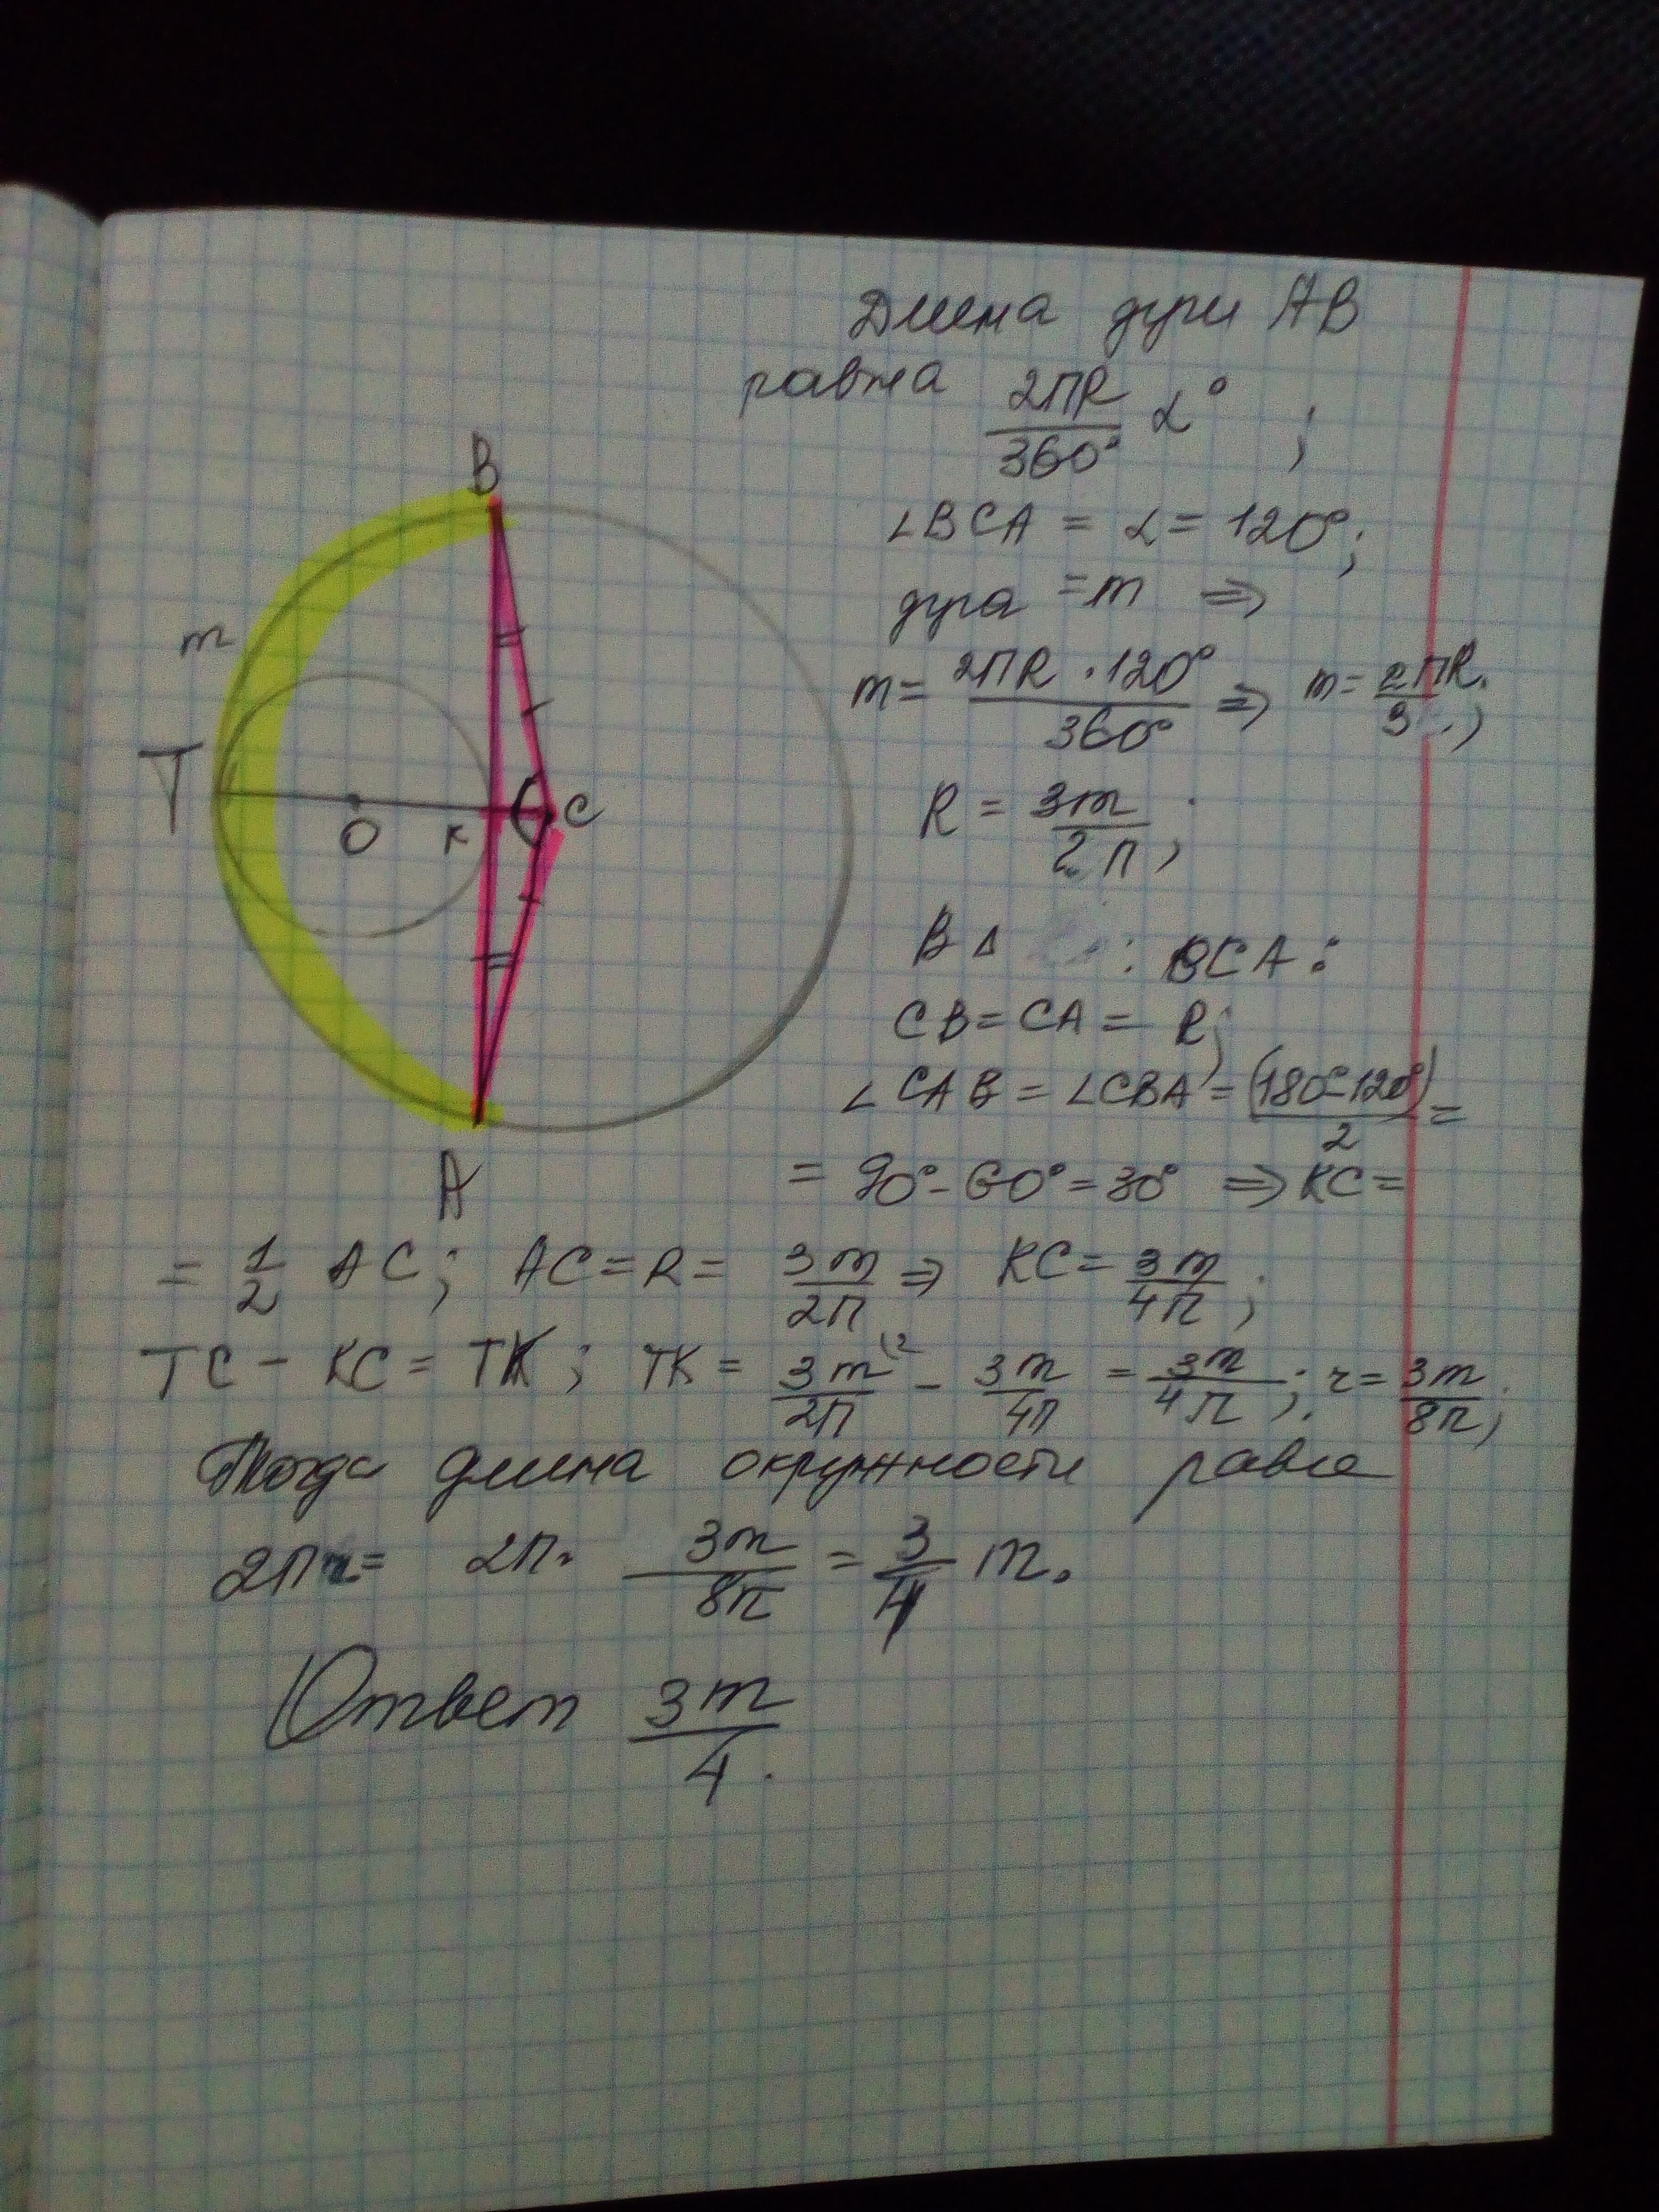 Длина дуги AB
равна 2ПR/360° α° ;
∠BCA = α = 120°;
дуга = m ⇒
m = 2ПR · 120°/360° ⇒ m = 2ПR/3 ;
R = 3m/2П ;
В Δ : BCA :
CB = CA = R;
∠CAB = ∠CBA = (180°-120°)/2 =
= 90° - 60° = 30° ⇒ KC =
= 1/2 AC ; AC = R = 3m/2П ⇒ KC = 3m/4П ;
TC - KC = TK ; TK = 3m\2/2П - 3m/4П = 3m/4П ; r = 3m/8П ;
Тогда длина окружности равна
2Пr = 2П · 3m/8П = 3/4 m.
Ответ 3m/4 .
B
m
T
O
K
C
A